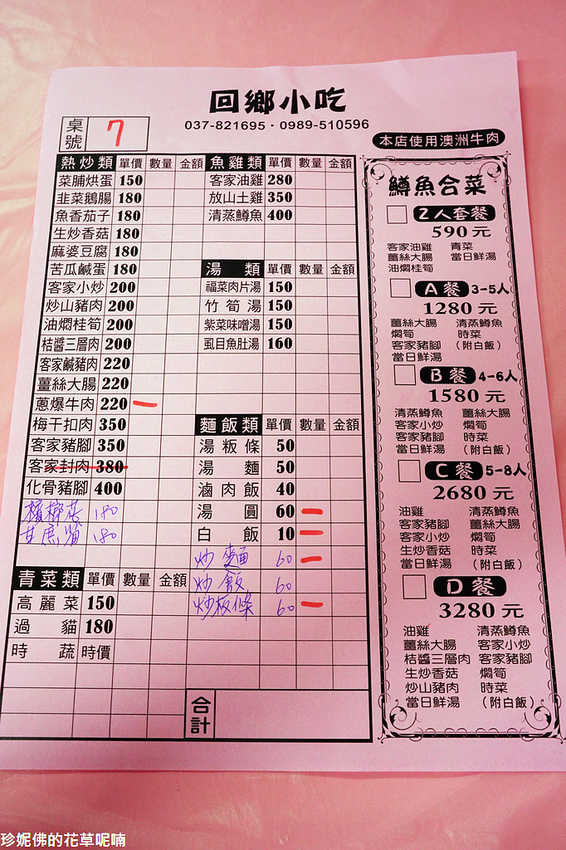 回鄉小吃
037-821695 · 0989-510596
桌號 7
本店使用澳洲牛肉
熱炒類 單價 數量 金額
菜脯烘蛋 150
韭菜鵝腸 180
魚香茄子 180
生炒香菇 180
麻婆豆腐 180
苦瓜鹹蛋 180
客家小炒 200
炒山豬肉 200
油燜桂筍 200
桔醬三層肉 200
客家鹹豬肉 220
薑絲大腸 220
蔥爆牛肉 220 一
梅干扣肉 350
客家豬腳 350
客家封肉 380
化骨豬腳 400
檳榔花 180
甘蔗筍 180
青菜類 單價 數量 金額
高麗菜 150
過貓 180
時蔬 時價
魚雞類 單價 數量 金額
客家油雞 280
放山土雞 350
清蒸鱒魚 400
湯類 單價 數量 金額
福菜肉片湯 150
竹筍湯 150
紫菜味噌湯 150
虱目魚肚湯 160
麵飯類 單價 數量 金額
湯粄條 50
湯麵 50
滷肉飯 40
湯圓 60 一
白飯 10 一
炒麵 60 一
炒飯 60
炒板條 60 一
合計
鱒魚合菜
2人套餐
590元
客家油雞 青菜
薑絲大腸 當日鮮湯
油燜桂筍
A餐 3-5人
1280元
薑絲大腸 清蒸鱒魚
燜筍 時菜
客家豬腳 (附白飯)
當日鮮湯
B餐 4-6人
1580元
清蒸鱒魚 薑絲大腸
客家小炒 燜筍
客家豬腳 時菜
當日鮮湯 (附白飯)
C餐 5-8人
2680元
油雞 清蒸鱒魚
客家豬腳 薑絲大腸
客家小炒 燜筍
生炒香菇 時菜
當日鮮湯 (附白飯)
D餐
3280元
油雞 清蒸鱒魚
薑絲大腸 客家小炒
桔醬三層肉 客家豬腳
生炒香菇 燜筍
炒山豬肉 時菜
當日鮮湯 (附白飯)
珍妮佛的花草呢喃